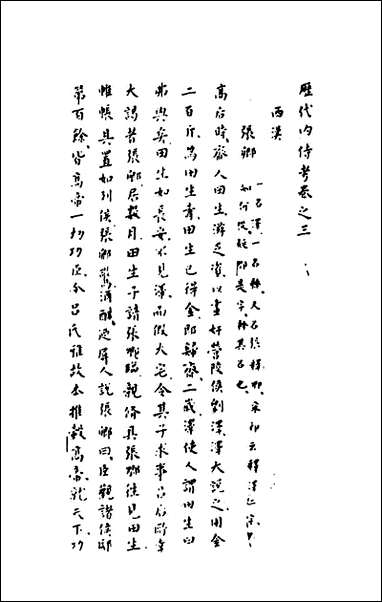 歷代內侍考卷之三
西漢
張卿 一名澤一名釋又名張釋卿宋祁云釋澤
卿是字釋其名也
高后時齊人田生游乏資以畫奸營陵侯劉澤澤大說之用金
二百斤為田生壽田生已得金即歸齊二歲澤使人謂田生曰
弗與矣田生如長安不見澤而假大宅令其子求事呂后所幸
大謁者張卿居數月田生子請張卿臨親脩具張卿往見田生
帷帳具置如列侯張卿驚酒酣迺屏人說張卿曰臣觀諸侯邸
第百餘皆高帝一切功臣今呂氏雅故本推轂高帝就天下功